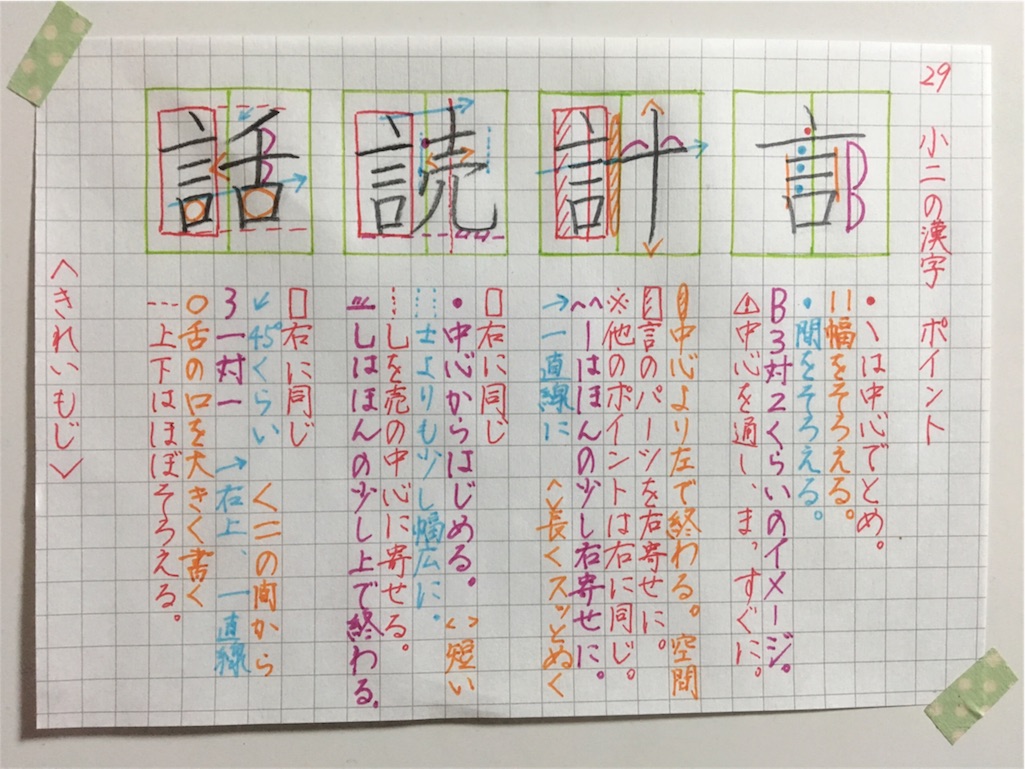 29 小二の漢字 ポイント
言
・丶は中心でとめ。
||幅をそろえる。
・間をそろえる。
B3対2くらいのイメージ。
中心を通し、まっすぐに。
計
中心より左で終わる。空間
言のパーツを右寄せに。
※他のポイントは右に同じ。
一はほんの少し右寄せに。
→一直線に 長くスッとぬく
読
右に同じ
・中心からはじめる。<>短い
士よりも少し幅広に。
しを売の中心に寄せる。
しはほんの少し上で終わる。
話
右に同じ
↙45°くらい く二の間から
3一対一 →右上、一直線
○舌の口を大きく書く
---上下はほぼそろえる。
〈きれいもじ〉